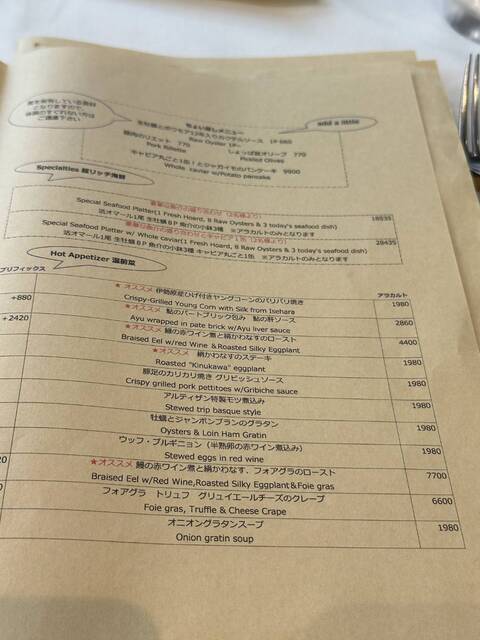 ご遠慮下さい
add a little
ちょい足しメニュー
Raw Oyster 1P~
1P 660
豚肉のリエット 770
しょっぱ旨オリーブ 770
Pork Rillette
Pickled Olives
キャビア丸ごと1缶！とジャガイモのパンケーキ 9900
Whole caviar w/Potato pancake
Specialties 超リッチ海鮮
Special Seafood Platter(1 Fresh Hoard, 8 Raw Oysters & 3 today's seafood dish)
活オマール1尾 生牡蠣8P 魚介の小鉢3種 ※アラカルトのみとなります
Special Seafood Platter w/ Whole caviar(1 Fresh Hoard, 8 Raw Oysters & 3 today's seafood dish)
28435
活オマール1尾 生牡蠣8P 魚介の小鉢3種 キャビア丸ごと1缶 ※アラカルトのみとなります
Hot Appetizer 温前菜
プリフィックス
アラカルト
★オススメ 伊勢原産ひげ付きヤングコーンのパリパリ焼き
1980
+880
Crispy-Grilled Young Corn with Silk from Isehara
★オススメ 鮎のパートブリック包み 鮎の肝ソース
2860
+2420
Ayu wrapped in pate brick w/Ayu liver sauce
★オススメ 鰻の赤ワイン煮と絹かわなすのロースト
4400
Braised Eel w/red Wine & Roasted Silky Eggplant
★オススメ 絹かわなすのステーキ
1980
Roasted "Kinukawa" eggplant
豚足のカリカリ焼き グリビッシュソース
1980
Crispy grilled pork pettitoes w/Gribiche sauce
アルティザン特製モツ煮込み
1980
Stewed trip basque style
牡蠣とジャンボンブランのグラタン
1980
Oysters & Loin Ham Gratin
ウッフ・ブルギニョン（半熟卵の赤ワイン煮込み）
1980
Stewed eggs in red wine
★オススメ 鰻の赤ワイン煮と絹かわなす、フォアグラのロースト
7700
Braised Eel w/Red Wine,Roasted Silky Eggplant&Foie gras
フォアグラ トリュフ グリュイエールチーズのクレープ
6600
Foie gras, Truffle & Cheese Crape
オニオングラタンスープ
1980
Onion gratin soup